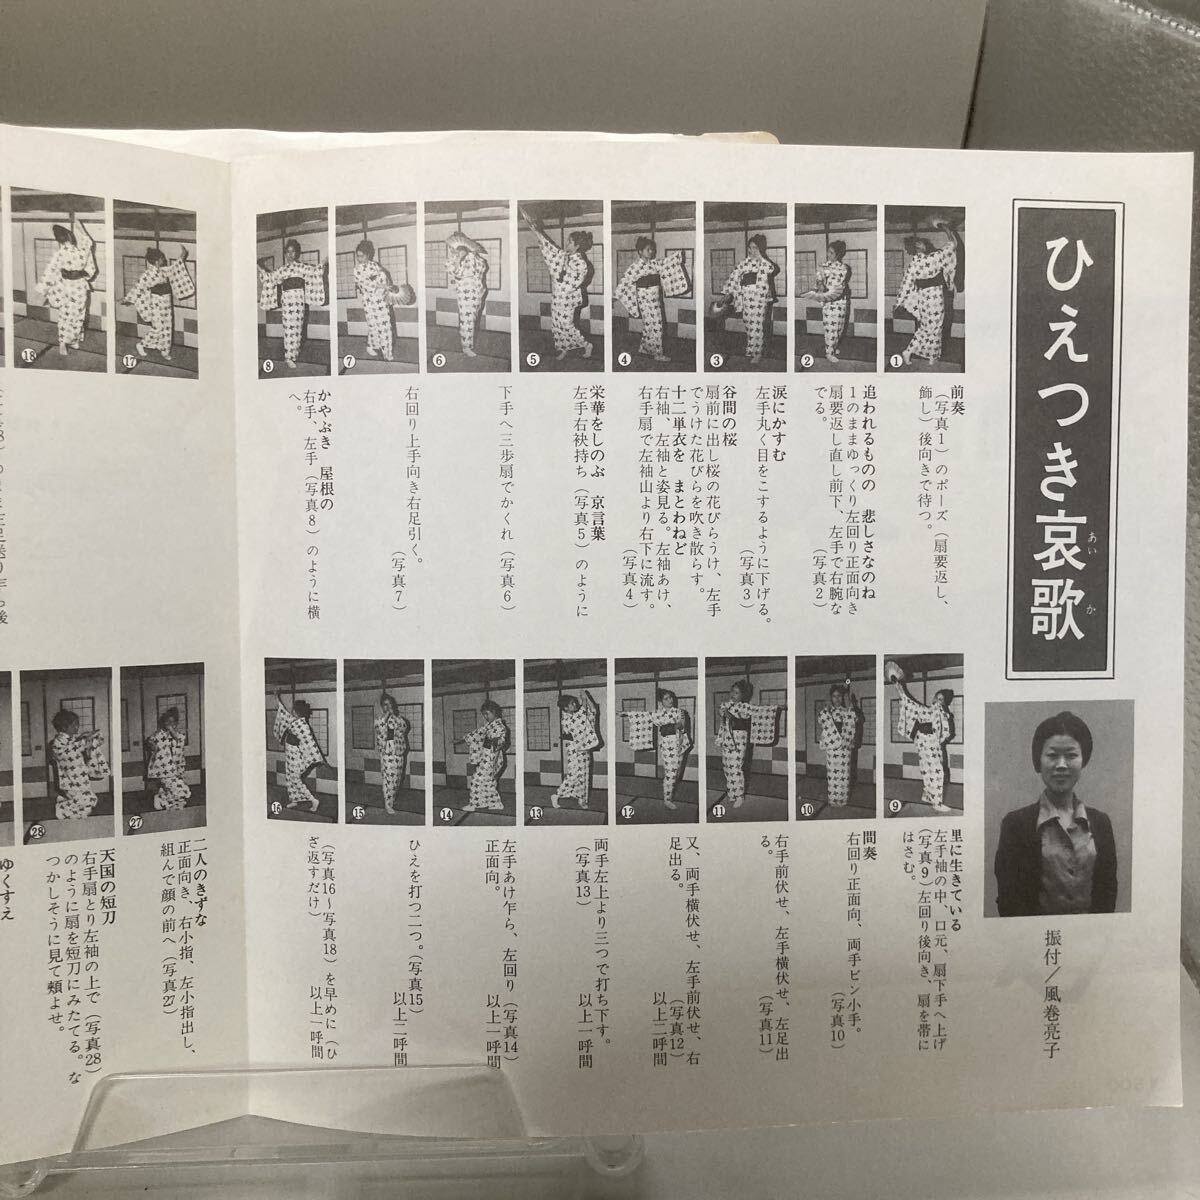 ひえつき哀歌
あい
か
振付／風巻亮子
①
②
③
④
⑤
⑥
⑦
⑧
前奏
（写真1）のポーズ（扇要返し、
飾し）後向きで待つ。
追われるものの　悲しさなのね
1のままゆっくり左回り正面向き
扇要返し直し前下、左手で右腕な
でる。　（写真2）
涙にかすむ
左手丸く目をこするように下げる。
（写真3）
谷間の桜
扇前に出し桜の花びらうけ、左手
でうけた花びらを吹き散らす。
十二単衣を　まとわねど
右袖、左袖と姿見る。左袖あけ、
右手扇で左袖山より右下に流す。
（写真4）
栄華をしのぶ　京言葉
左手右袂持ち（写真5）のように
下手へ三歩扇でかくれ（写真6）
右回り上手向き右足引く。
（写真7）
かやぶき　屋根の
右手、左手（写真8）のように横
へ。
⑨
⑩
⑪
⑫
⑬
⑭
⑮
⑯
里に生きている
左手袖の中、口元、扇下手へ上げ
（写真9）左回り後向き、扇を帯に
はさむ。
間奏
右回り正面向、両手ビン小手。
（写真10）
右手前伏せ、左手横伏せ、左足出
る。　（写真11）
又、両手横伏せ、左手前伏せ、右
足出る。　（写真12）
以上二呼間
両手左上より三つで打ち下す。
（写真13）　以上一呼間
左手あけ乍ら、左回り（写真14）
正面向。　以上一呼間
ひえを打つ二つ。（写真15）
以上二呼間
（写真16～写真18）を早めに（ひ
ざ返すだけ）　以上一呼間
⑰
⑱
㉗
㉘
二人のきずな
正面向き、右小指、左小指出し、
組んで顔の前へ（写真27）
天国の短刀
右手扇とり左袖の上で（写真28）
のように扇を短刀にみたてる。な
つかしそうに見て頬よせ。
ゆくすえ